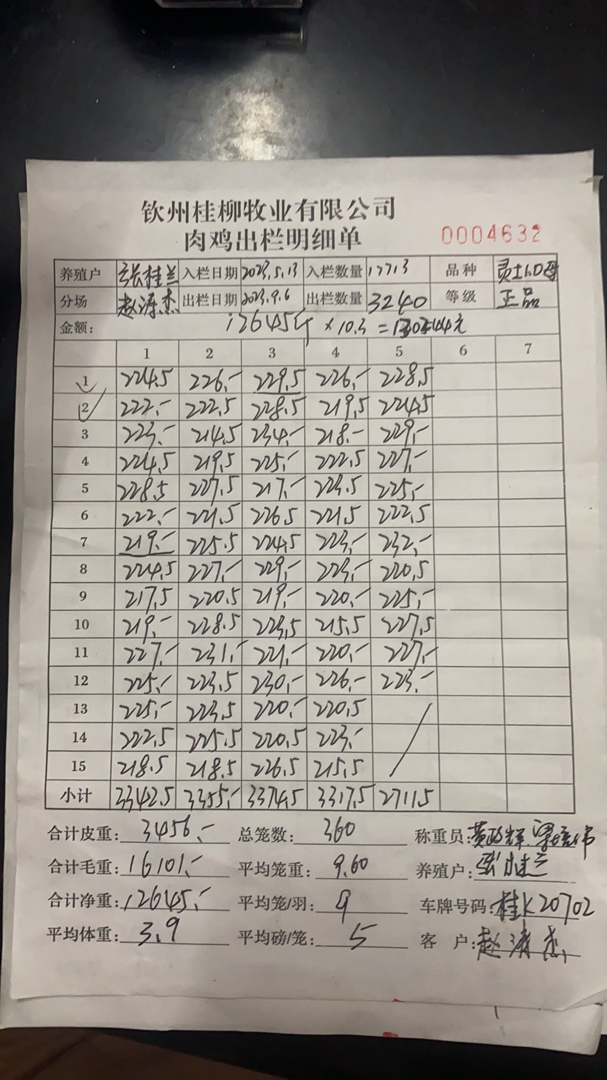 钦州桂柳牧业有限公司
肉鸡出栏明细单 0004632
养殖户 张桂兰 入栏日期 2023.5.13 入栏数量 17713 品种
分场 赵涛杰 出栏日期 2023.9.6 出栏数量 3240 等级 正品
金额: 12645斤 × 10.3 = 元
1 2 3 4 5 6 7
1 224.5 226.- 229.5 226.- 228.5
2 222.- 222.5 228.5 219.5 224.5
3 223.- 214.5 234.- 218.- 229.-
4 224.5 219.5 225.- 222.5 227.-
5 228.5 227.5 217.- 223.5 225.-
6 222.- 221.5 226.5 221.5 222.5
7 219.- 225.5 224.5 223.- 232.-
8 224.5 227.- 229.- 223.- 220.5
9 217.5 220.5 219.- 220.- 225.-
10 219.- 228.5 223.5 215.5 227.5
11 227.- 231.- 221.- 220.- 227.-
12 225.- 223.5 230.- 226.- 223.-
13 225.- 223.5 220.- 220.5
14 222.5 225.5 220.5 223.-
15 218.5 218.5 226.5 215.5
小计 3342.5 3355.- 3374.5 3317.5 2711.5
合计皮重: 3456.- 总笼数: 360 称重员:
合计毛重: 16101.- 平均笼重: 9.60 养殖户:
合计净重: 12645.- 平均笼/羽: 9 车牌号码: 桂K20702
平均体重: 3.9 平均磅/笼: 5 客户: 赵涛杰